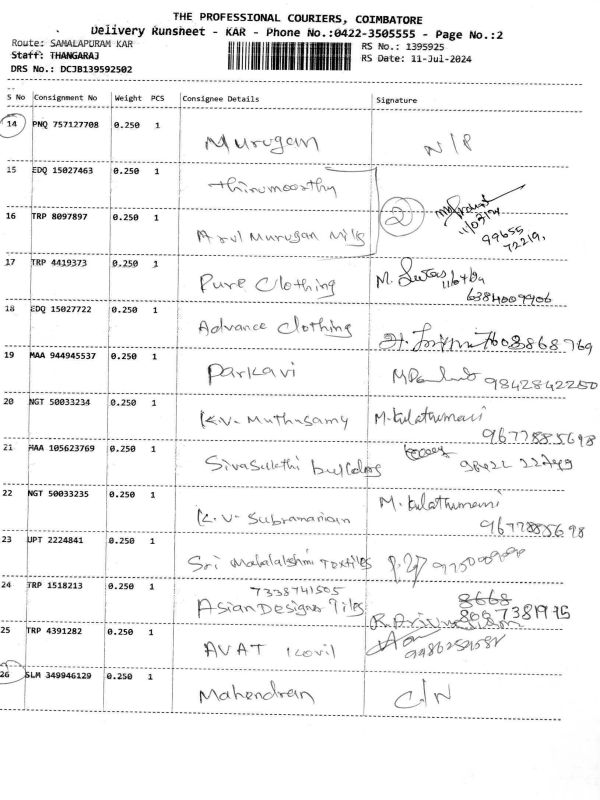 THE PROFESSIONAL COURIERS, COIMBATORE
Delivery Runsheet - KAR - Phone No.:0422-3505555 - Page No.:2
Route: SAMALAPURAM KAR
RS No.: 1395925
Staff: THANGARAJ
RS Date: 11-Jul-2024
DRS No.: DCJB139592502
S No Consignment No Weight PCS Consignee Details Signature
14 PNQ 757127708 0.250 1 Murugan N/P
15 EDQ 15027463 0.250 1 Thirumoorthy
16 TRP 8097897 0.250 1 Arul Murugan Mills 2
99655
72219
17 TRP 4419373 0.250 1 Pure Clothing M.
6384009906
18 EDQ 15027722 0.250 1 Advance Clothing
19 MAA 944945537 0.250 1 Parkavi 9842842250
20 NGT 50033234 0.250 1 K.V. Muthusamy M. Kulathumani
9677885698
21 MAA 105623769 0.250 1 Sivasakthi builders
22 NGT 50033235 0.250 1 K.V. Subramanian M. Kulathumani
9677885698
23 UPT 2224841 0.250 1 Sri Mahalakshmi Textiles
24 TRP 1518213 0.250 1 7338741505
Asian Designer Tiles 8668
8667381995
25 TRP 4391282 0.250 1 AVAT Kovil
26 SLM 349946129 0.250 1 Mahendran C/N